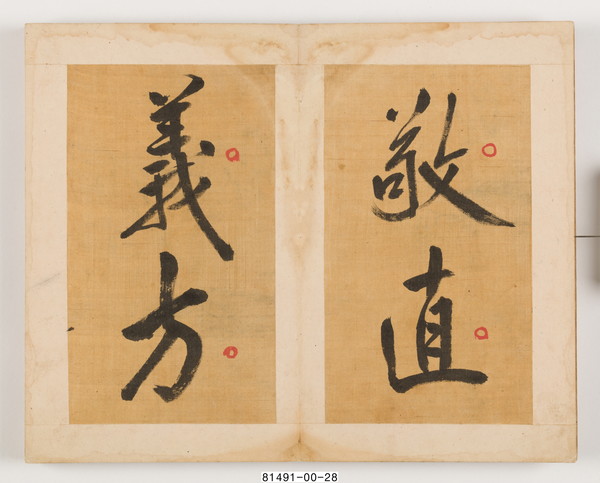 敬直
義方
81491-00-28